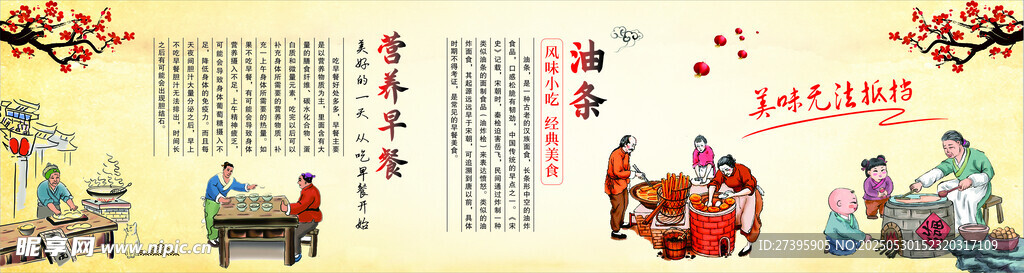 美味无法抵挡
油条
风味小吃 经典美食
油条，是一种古老的汉族面食，长条形中空的油炸
食品，口感松脆有韧劲，中国传统的早点之一。《宋
史》记载，宋朝时，秦桧迫害岳飞，民间通过炸制一种
类似油条的面制食品（油炸桧）来表达愤怒。类似的油
炸面食，其起源远远早于宋朝，可追溯到唐以前，具体
时期不得考证，是常见的早餐美食。
营养早餐
美好的一天 从吃早餐开始
吃早餐好处多多，早餐主要
是以营养物质为主，里面含有大
量的膳食纤维、碳水化合物、蛋
白质和微量元素，吃完以后可以
补充身体所需要的营养物质，补
充一上午身体所需要的热量，如
果不吃早餐，有可能会导致身体
营养摄入不足，上午精神疲乏，
可能会导致身体葡萄糖摄入不
足，降低身体的免疫力。而且每
天夜间胆汁大量分泌之后，早上
不吃早餐胆汁无法排出，时间长
之后有可能会出现胆结石。
昵享网 www.nipic.cn
ID:27395905 NO:20250530152320317109